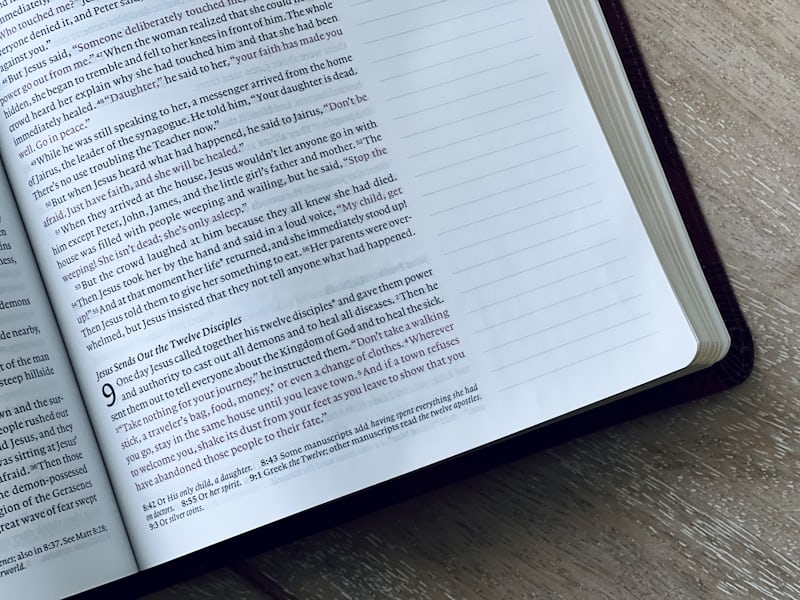 demons
de nearby,
of the man
steep hillside
wn and the sur-
eople rushed out
d Jesus, and they
was sitting at Jesus'
afraid. 36Then those
he demon-possessed
egion of the Gerasenes
great wave of fear swept
also in 8:37. See Matt 8:28;
immediately,
Who touched me?"
everyone denied it, and Peter said,
against you."
46But Jesus said, "Someone deliberately touched me,
power go out from me." 47When the woman realized that she could
hidden, she began to tremble and fell to her knees in front of him. The whole
crowd heard her explain why she had touched him and that she had been
immediately healed. 48"Daughter," he said to her, "your faith has made you
well. Go in peace."
49While he was still speaking to her, a messenger arrived from the home
of Jairus, the leader of the synagogue. He told him, "Your daughter is dead.
There's no use troubling the Teacher now."
50But when Jesus heard what had happened, he said to Jairus, "Don't be
afraid. Just have faith, and she will be healed."
51When they arrived at the house, Jesus wouldn't let anyone go in with
him except Peter, John, James, and the little girl's father and mother. 52The
house was filled with people weeping and wailing, but he said, "Stop the
weeping! She isn't dead; she's only asleep."
53But the crowd laughed at him because they all knew she had died.
54Then Jesus took her by the hand and said in a loud voice, "My child, get
up!" 55And at that moment her life* returned, and she immediately stood up!
Then Jesus told them to give her something to eat. 56Her parents were over-
whelmed, but Jesus insisted that they not tell anyone what had happened.
Jesus Sends Out the Twelve Disciples
9 One day Jesus called together his twelve disciples* and gave them power
and authority to cast out all demons and to heal all diseases. 2Then he
sent them out to tell everyone about the Kingdom of God and to heal the sick.
3"Take nothing for your journey," he instructed them. "Don't take a walking
stick, a traveler's bag, food, money,* or even a change of clothes. 4Wherever
you go, stay in the same house until you leave town. 5And if a town refuses
to welcome you, shake its dust from your feet as you leave to show that you
have abandoned those people to their fate."
8:42 Or His only child, a daughter. 8:43 Some manuscripts add having spent everything she had
on doctors. 8:55 Or her spirit. 9:1 Greek the Twelve; other manuscripts read the twelve apostles.
9:3 Or silver coins.